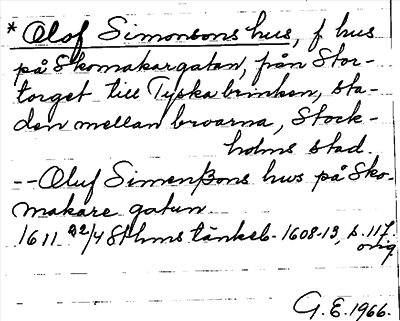 * Olof Simonsons hus, f. hus
på Skomakargatan, från Stor-
torget till Tyska brinken, sta-
den mellan broarna, Stock-
holms stad.
-- Oluf Simenßons hus på Sko-
makare gatun
1611 22/4 Sthms tänkeb. 1608-13, s. 117.
orig
G.E. 1966.